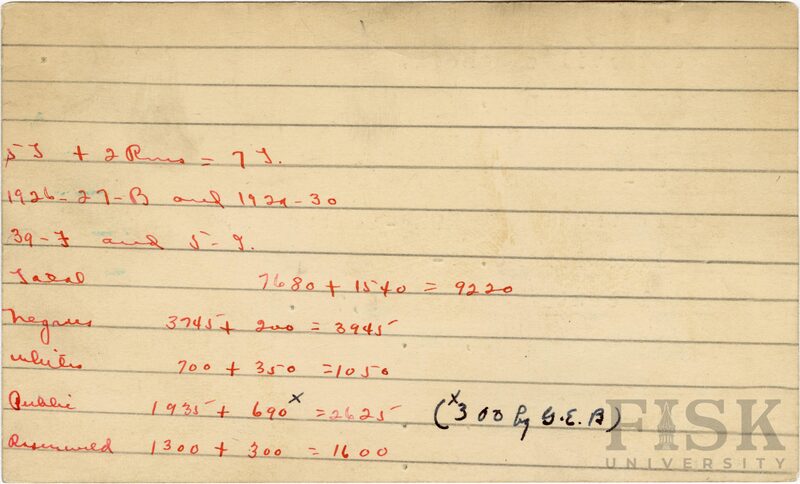 5 T + 2 Rms = 7 T.
1926-27-B and 1929-30
39-F and 5-T.
Total 7680 + 1540 = 9220
Negroes 3745 + 200 = 3945
Whites 700 + 350 = 1050
Public 1935 + 690 x = 2625 (x 300 by G.E.B)
Rosenwald 1300 + 300 = 1600
FISK
UNIVERSITY